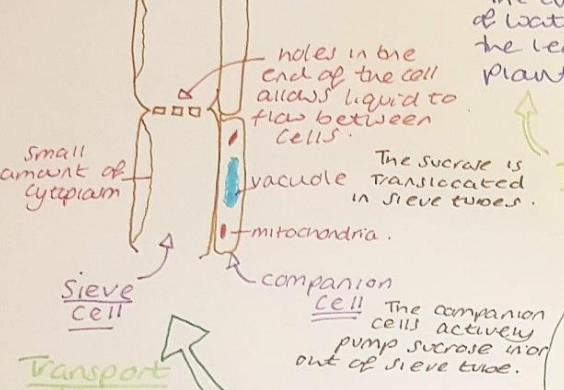 of wat
the le
plant
holes in the
end of the cell
allows liquid to
flow between
cells.
small
amount of
cytoplasm
vacuole
The sucrose is
translocated
in sieve tubes.
mitochondria.
sieve
cell
companion
cell
The companion
cells actively
pump sucrose in or
out of sieve tube.
Transport